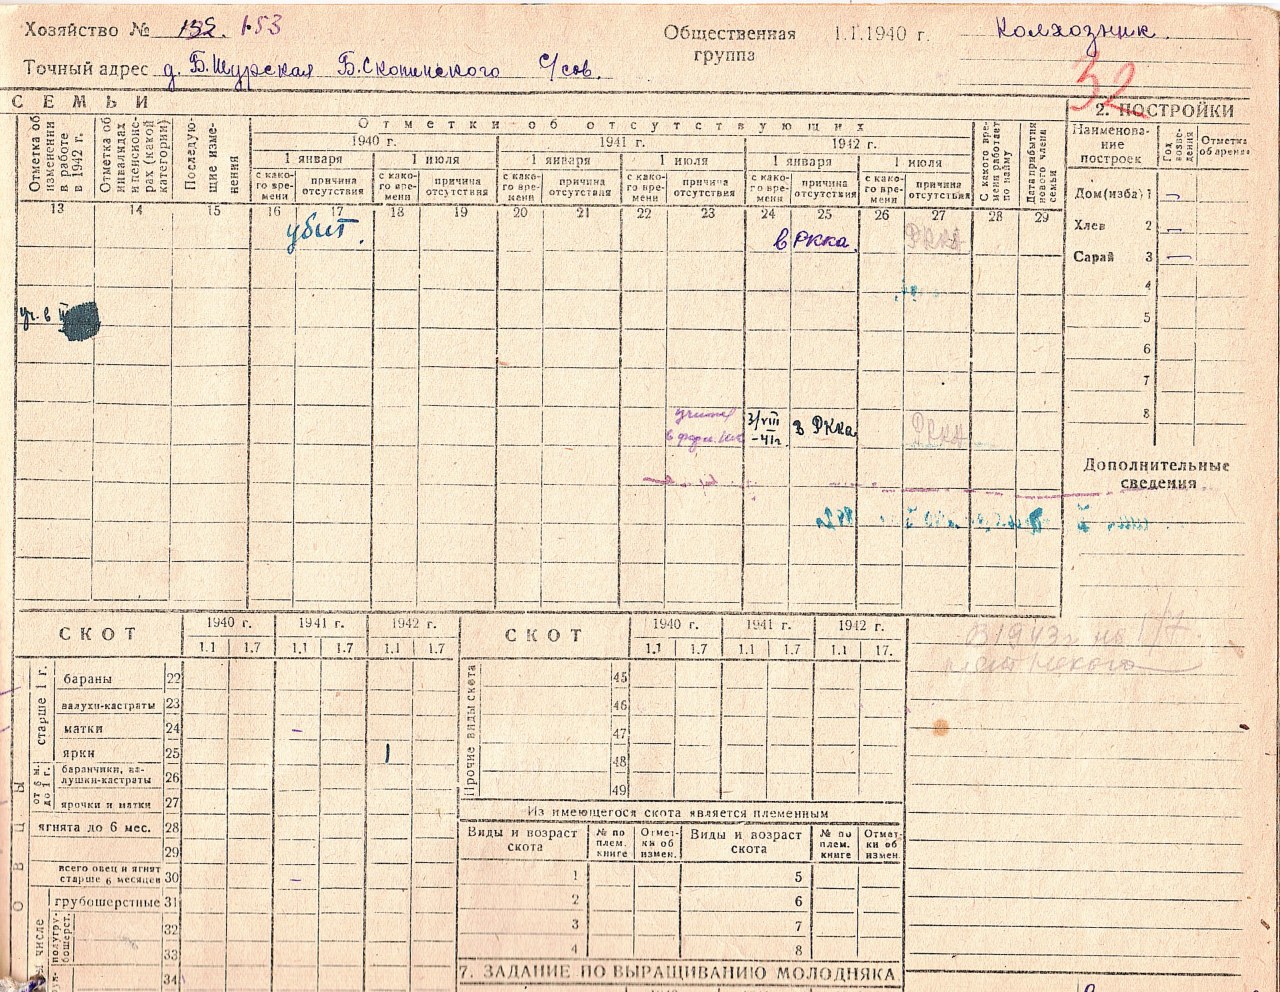 Хозяйство № 152. 153
Общественная группа 1.1.1940 г. Колхозник.
Точный адрес д. Б.Шурская Б.Скопинского с/сов.
32
СЕМЬИ
2. ПОСТРОЙКИ
Отметка об изменении в работе в 1942 г.
Отметка об инвалидах и пенсионерах (какой категории)
Последующие изменения
Отметки об отсутствующих
1940 г. 1941 г. 1942 г.
1 января 1 июля 1 января 1 июля 1 января 1 июля
с какого времени причина отсутствия с какого времени причина отсутствия с какого времени причина отсутствия с какого времени причина отсутствия с какого времени причина отсутствия с какого времени причина отсутствия
С какого времени работает по найму
Дата прибытия нового члена семьи
Наименование построек
Год возведения
Отметка об аренде
13 14 15 16 17 18 19 20 21 22 23 24 25 26 27 28 29
убит.
в РККА.
РККА
Дом(изба) 1
Хлев 2
Сарай 3
4
5
6
7
8
уч. в III
3/VIII -41г. в РККа
РККА
Дополнительные сведения
СКОТ
1940 г. 1941 г. 1942 г.
1.1 1.7 1.1 1.7 1.1 1.7
СКОТ
1940 г. 1941 г. 1942 г.
1.1 1.7 1.1 1.7 1.1 17.
ОВЦЫ
старше 1 г.
бараны 22
валухи-кастраты 23
матки 24 –
ярки 25 1
от 6 м. до 1 г.
баранчики, валушки-кастраты 26
ярочки и матки 27
ягнята до 6 мес. 28
29
всего овец и ягнят старше 6 месяцев 30 –
числе
грубошерстные 31
полугрубошерст.
32
33
34
Прочие виды скота
45
46
47
48
49
Из имеющегося скота является племенным
Виды и возраст скота № по плем. книге Отметки об измен. Виды и возраст скота № по плем. книге Отметки об измен.
1 5
2 6
3 7
4 8
7. ЗАДАНИЕ ПО ВЫРАЩИВАНИЮ МОЛОДНЯКА